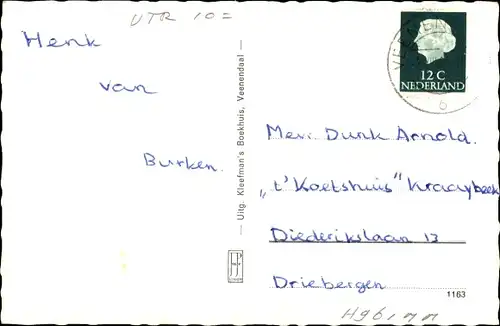 UTR 10=
Henk
van
Burken.
Uitg. Kleefman's Boekhuis, Veenendaal
12 C
NEDERLAND
Mevr. Dunk Arnold.
„t' Koetshuis" Kraaybeek
Diederikslaan 13
Driebergen
1163